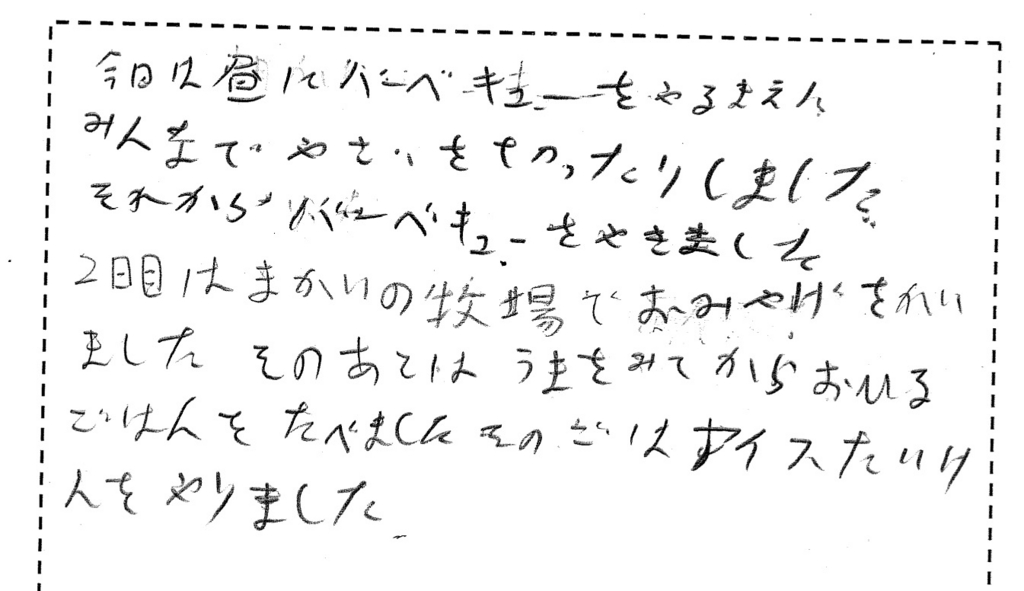 今日は昼にバーベキューをやるまえに
みんなでやさいをきったりしました。
それからバーベキューをやきました
2日目はまかいの牧場でおみやげをかい
ました そのあとはうまをみてからおひる
ごはんをたべました そのごはアイスたいけ
んをやりました.